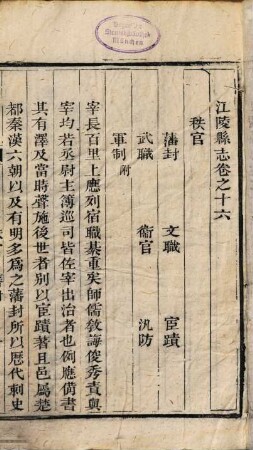 江陵縣志卷之十六
秩官
藩封 文職 宦蹟
武職 衞官 汛防
軍制附
宰長百里上應列宿職綦重矣師儒敎誨俊秀責與
宰均若丞尉主簿巡司皆佐宰出治者也例應僃書
其有澤及當時聲施後世者别以宦蹟著且邑屬楚
都秦漢六朝以及有明多爲之藩封所以歴代刺史